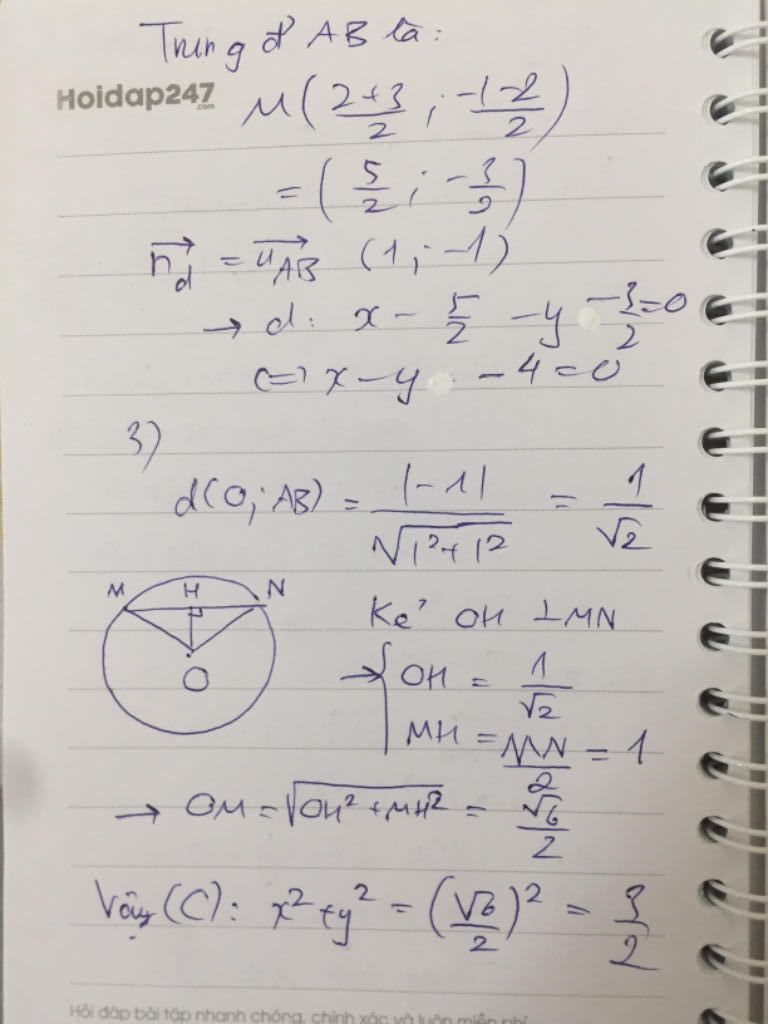 Trung đ' AB là:
Hoidap247.com
M( (2+3)/2 ; (-1-2)/2 )
= ( 5/2 ; -3/2 )
n_d→ = u_AB→ (1; -1)
→ d: x - 5/2 - y - 3/2 = 0
<=> x - y - 4 = 0
3)
d(O; AB) = |-1| / √(1²+1²) = 1/√2
M H N
O
Kẻ OH ⊥ MN
→ { OH = 1/√2
MH = MN/2 = 1
→ OM = √(OH² + MH²) = √6/2
Vậy (C): x² + y² = (√6/2)² = 3/2
Hỏi đáp bài tập nhanh chóng, chính xác và luôn miễn phí